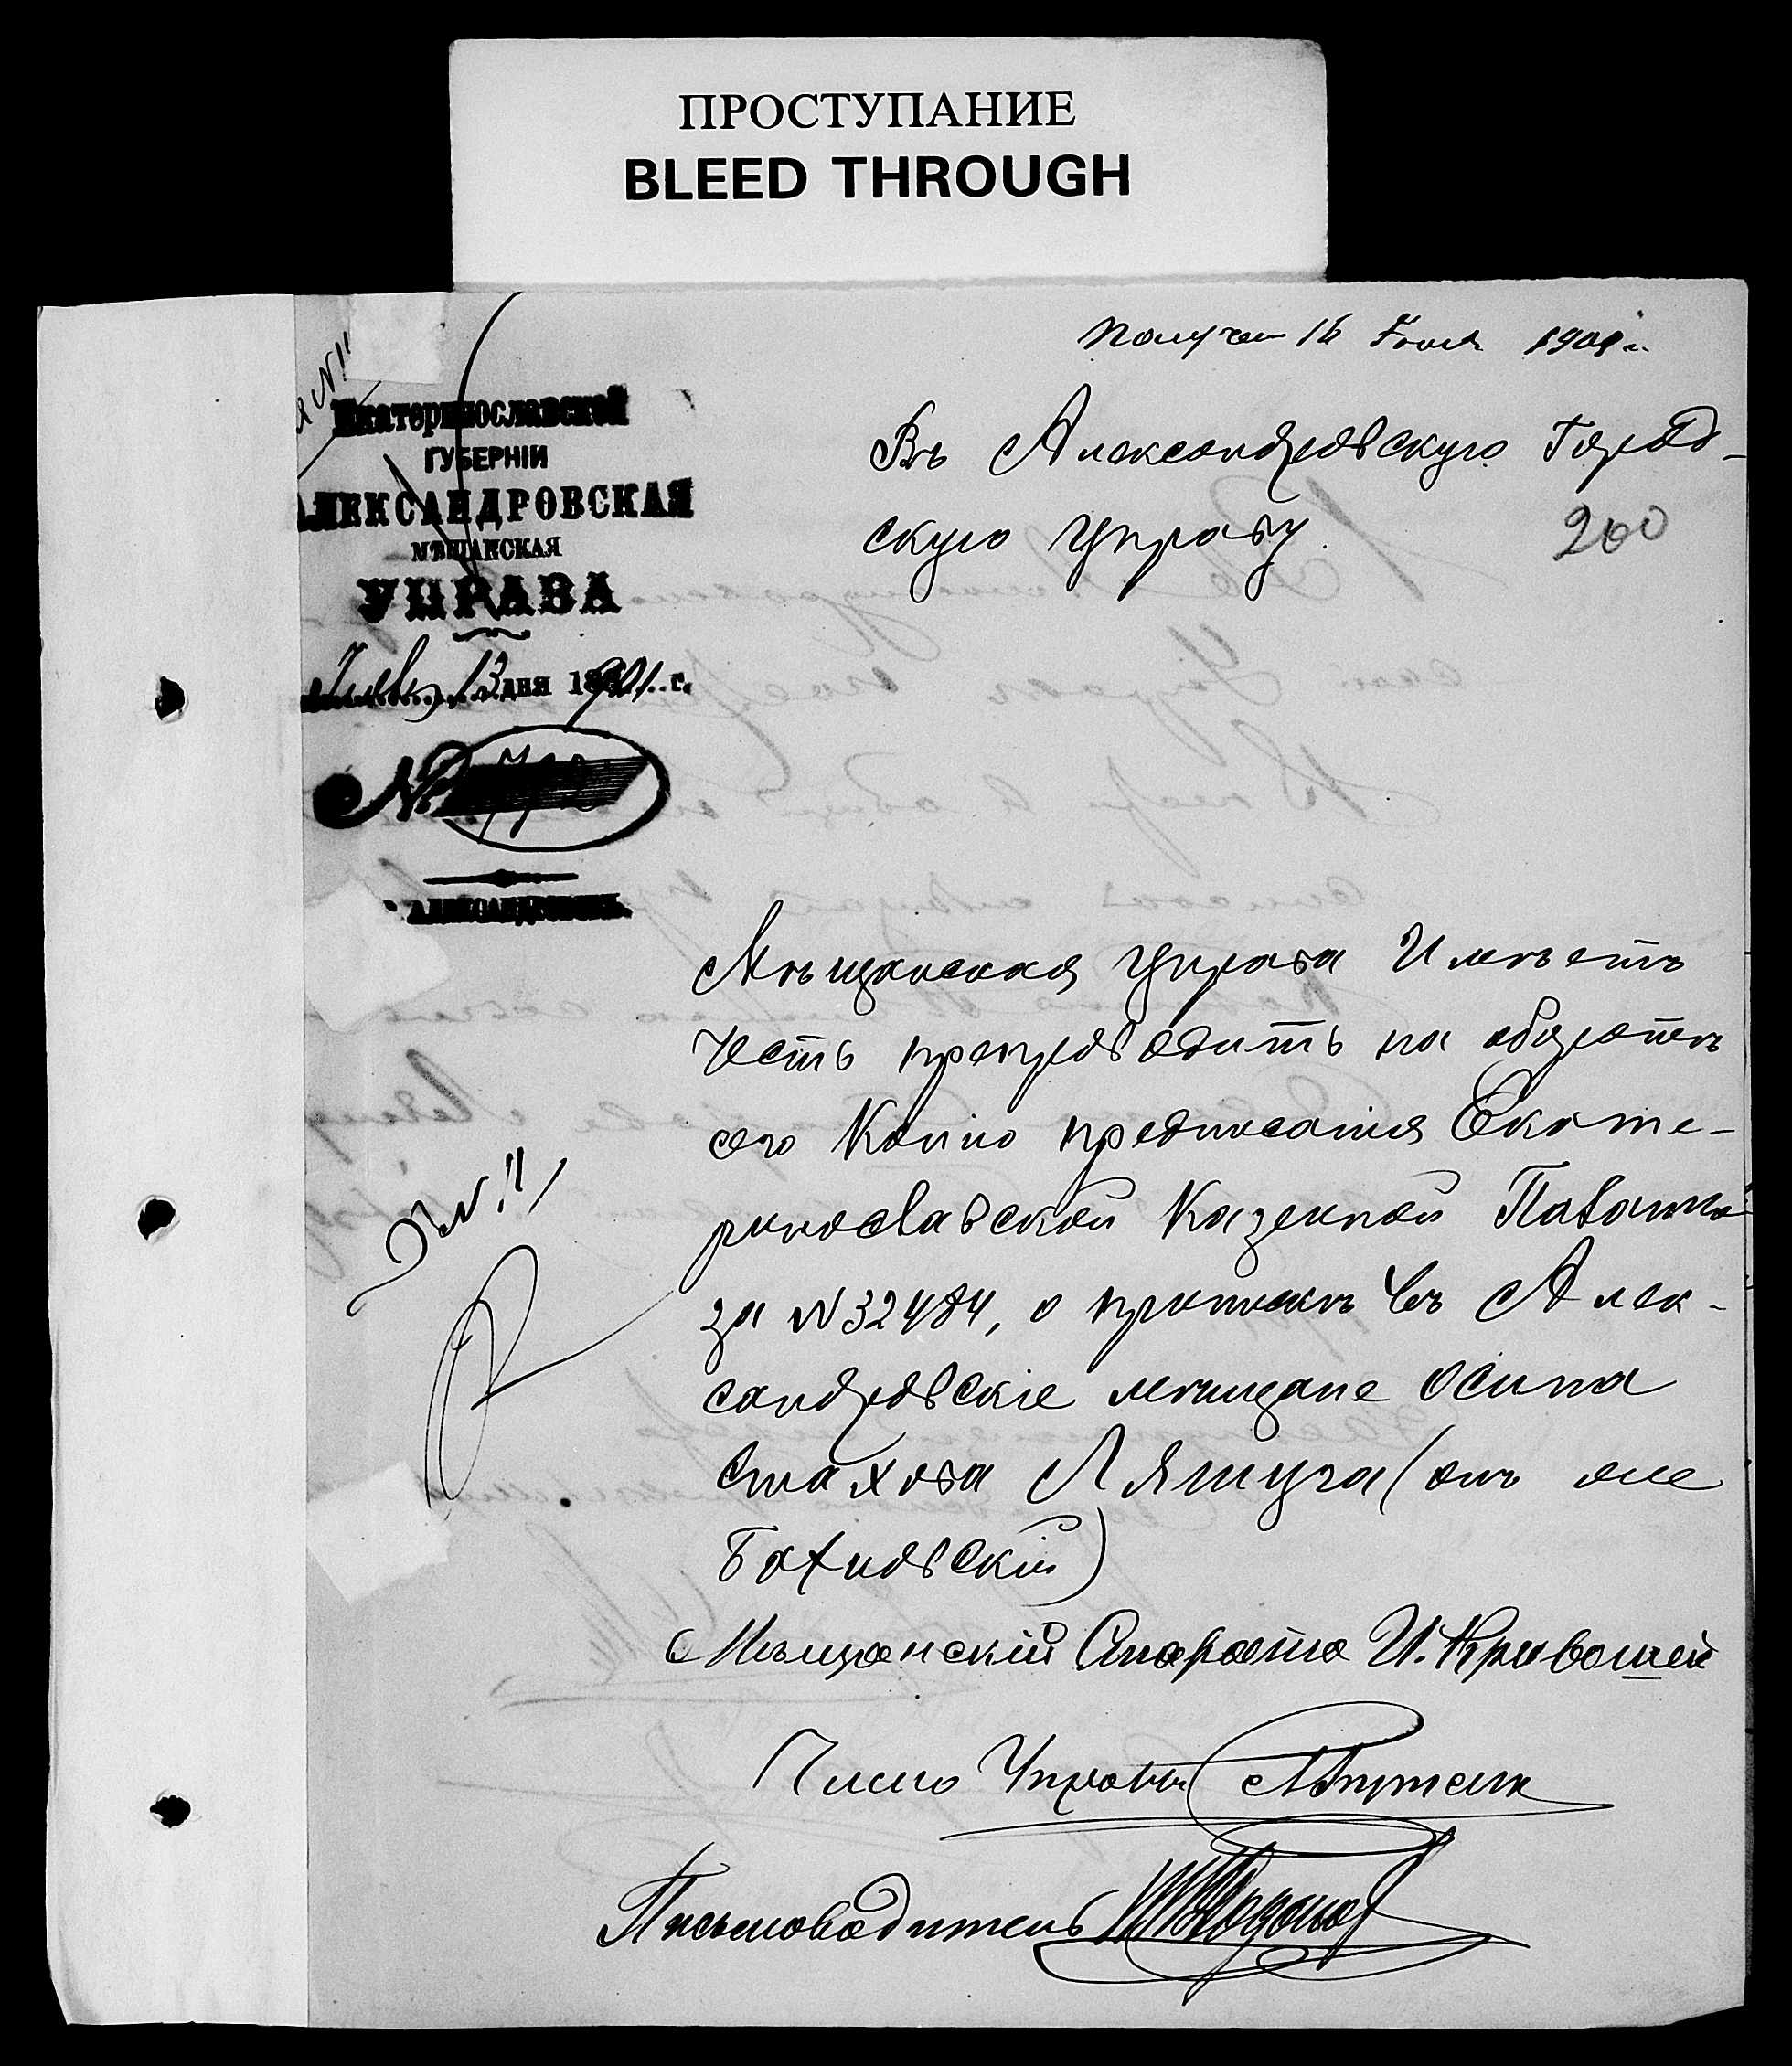 ПРОСТУПАНИЕ
BLEED THROUGH
Получен 16 Іюля 1901 г.
Екатеринославской
ГУБЕРНІИ
АЛЕКСАНДРОВСКАЯ
МѢЩАНСКАЯ
УПРАВА
Іюля 13 дня 1901 г.
№
АЛЕКСАНДРОВСКЪ.
Въ Александровскую Город-
скую Управу.
200
Мѣщанская Управа Имѣетъ
честь препроводить на оборотѣ
сего Копію предписанія Екате-
ринославской Казенной Палаты
за №32484, о припискѣ въ Алек-
сандровскіе мѣщане Осипа
Стахова Ляшуга (онъ же
Бахновскій)
Мѣщанскій Староста И. Кривошей
Членъ Управы
Письмоводитель